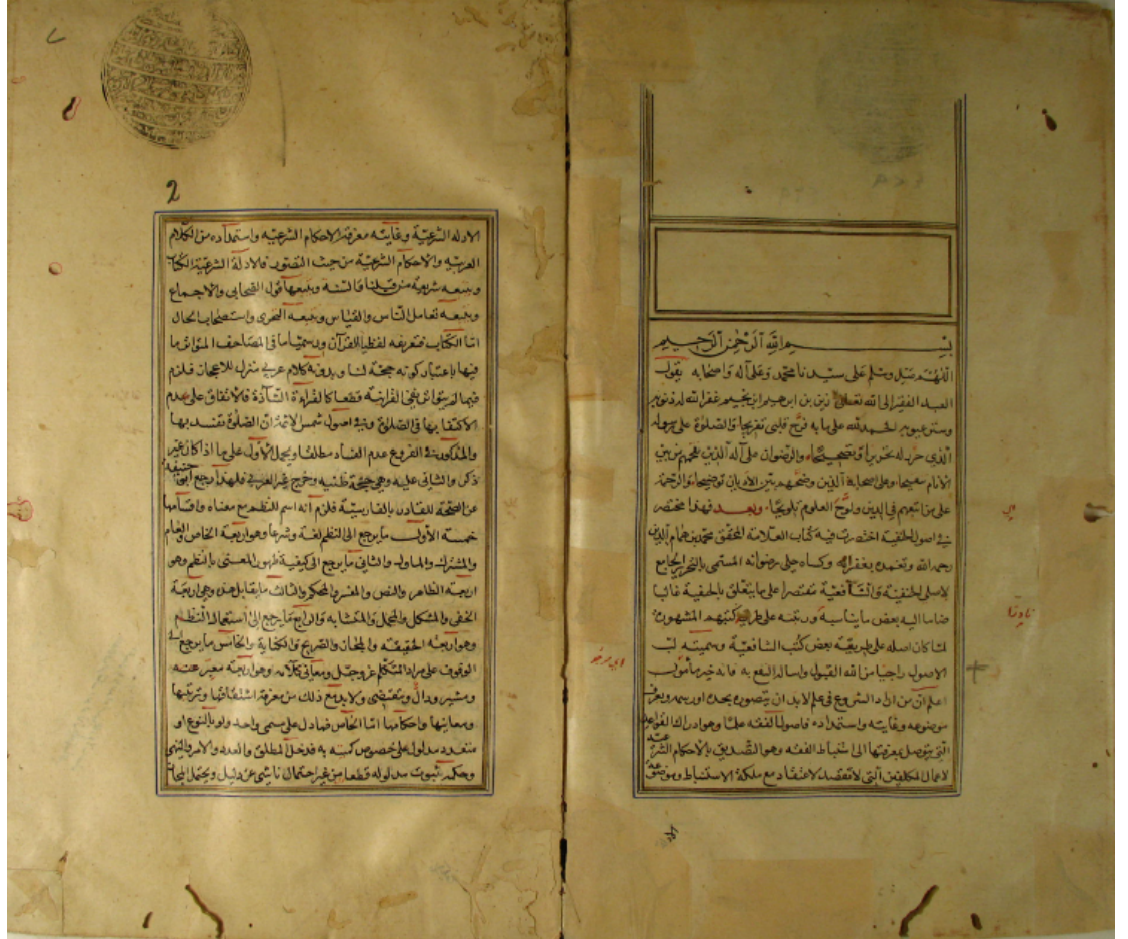 بسم الله الرحمن الرحيم
اللهم صل وسلم على سيدنا محمد وعلى آله واصحابه يقول
العبد الفقير الى الله تعالى زين بن ابراهيم ابن نجيم غفر الله له ذنوبه
وستر عيوبه الحمد لله على ما به فرج قلبي تفريجا والصلوة على
الذي حرر له تحريرا والرضوان على آله الذين
الانام وعلى اصحابه الذين وضحهم بين الاديان توضيحا والرحمة
على من تابعهم في الدين ولوح العلوم تلويحا وبعد فهذا مختصر
في اصول الحنفية اختصرت فيه كتاب العلامة المحقق محمد بن همام الدين
رحمه الله وتغمده بغفرانه وكساه حلى رضوانه المسمى بالتحرير الجامع
لاصلي الحنفية والشافعية مقتصرا على ما يتعلق بالحنفية غالبا
ضاما اليه بعض ما يناسبه ورتبته على طريق كتبهم المشهورة
لما كان اصله على طريقة بعض كتب الشافعية وسميته لب
الاصول راجيا من الله القبول واساله النفع به فانه خير مأمول
اعلم ان من اراد الشروع في علم لابد ان يتصوره بحده او رسمه ويعرف
موضوعه وغايته واستمداده فاصول الفقه علما وهو ادراك القواعد
التي يتوصل بمعرفتها الى استنباط الفقه وهو التصديق بالاحكام الشرعية
لاعمال المكلفين التي لا تقصد لاعتقاد مع ملكة الاستنباط وموضوعه
2
الادلة الشرعية وغايته معرفة الاحكام الشرعيه واستمداده من الكلام
العربيه والاحكام الشرعية من حيث التصور فالادلة الشرعية الكتاب
ويتبعه شريعة من قبلنا والسنة ويتبعها قول الصحابي والاجماع
ويتبعه تعامل الناس والقياس ويتبعه التحري واستصحاب الحال
اما الكتاب فتعريفه لفظيا القرآن ورسميا ما في المصاحف المتواتر ما
فيها باعتبار كونه حجة لنا وبدونه كلام عربي منزل للاعجاز فلزم
فيما لم يتواتر نفي القرآنية قطعا كالقراءة الشاذة والاتفاق على عدم
الاكتفا بها في الصلوة وفي اصول شمس الائمة ان الصلوة تفسد بها
والمذكور في الفروع عدم الفساد مطلقا ويحمل الاول على ما اذا كان غير
ذكر والثاني عليه وهي حجة ظنيه وخرج غير العربي فلهذا رجع ابو حنيفة
عن الصحة للقادر بالفارسية فلزم انه اسم للنظم مع معناه واقسامها
خمسة الاول ما يرجع الى النظم لغة وشرعا وهو اربعة الخاص والعام
والمشترك والماول والثاني ما يرجع الى كيفية ظهور المعنى بالنظم وهو
اربعة الظاهر والنص والمفسر والمحكم والثالث ما يقابل هذه وهي اربعة
الخفى والمشكل والمجمل والمتشابه والرابع ما يرجع الى استعمال النظم
وهو اربعة الحقيقة والمجاز والصريح والكناية والخامس ما يرجع الى
الوقوف على مراد المتكلم عز وجل ومعاني كلامه وهو اربعة معبر عنه
ومشير ودال ومقتضى ولابد مع ذلك من معرفة اشتقاقها وترتيبها
ومعانيها واحكامها اما الخاص فما دل على مسمى واحد ولو بالنوع او
متعدد مدلوله على خصوص كميته به فدخل المطلق والعدد والامر والنهي
وحكمه ثبوت مدلوله قطعا من غير احتمال ناشئ عن دليل ويحتمل المجاز